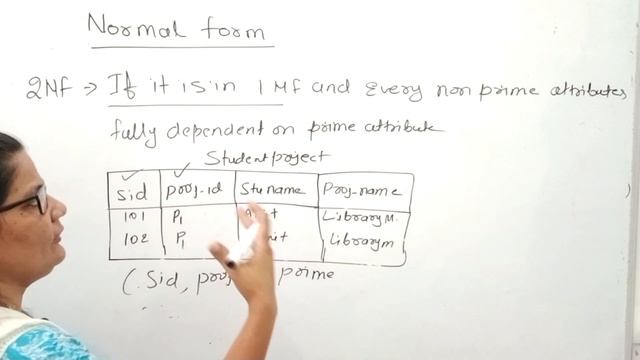 Normal form
2NF → If it is in 1 NF and Every non prime attributes
fully dependent on prime attribute
Student project
Sid Proj-id Stu name Proj-name
101 P1 Library M.
102 P1 Library m
( Sid, prime